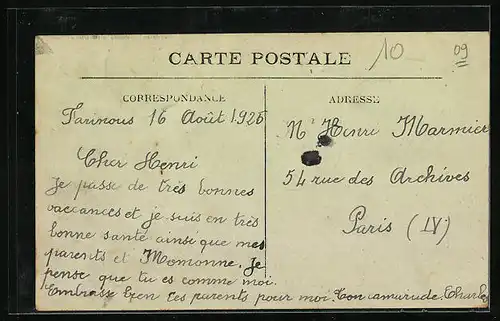 10
09
CARTE POSTALE
CORRESPONDANCE
Farinous 16 Août 1925
Cher Henri
Je passe de très bonnes
vaccances et je suis en très
bonne santé ainsi que mes
parents et Momonne. Je
pense que tu es comme moi.
Embrasse bien tes parents pour moi. Ton camarade. Charles
ADRESSE
Mr Henri Marmier
54 rue des Archives
Paris (IV)